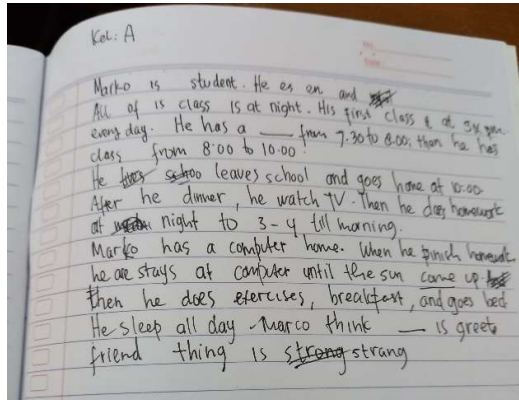 Kel: A
Marko is student. He es en and
All of is class is at night. His first class at pm
every day. He has a ___ from 7.30 to 8:00, then he has
class from 8:00 to 10:00.
He leaves school and goes home at 10:00
After he dinner, he watch TV. Then he does homework
at night to 3-4 till morning.
Marko has a computer home. When he finish homework
he are stays at computer until the sun came up
then he does exercises, breakfast, and goes bed
He sleep all day. Marco think ___ is greet
friend thing is strong strang